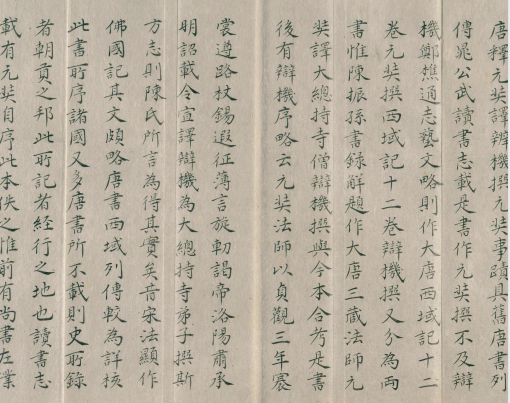 唐釋元奘譯辯機撰元奘事蹟具舊唐書列
傳晁公武讀書志載是書作元奘撰不及辯
機鄭樵通志藝文略則作大唐西域記十二
卷元奘撰西域記十二卷辯機撰又分為兩
書惟陳振孫書錄解題作大唐三藏法師元
奘譯大總持寺僧辯機撰與今本合考是書
後有辯機序略云元奘法師以貞觀三年褰
裳遵路杖錫遐征薄言旋軔謁帝洛陽肅承
明詔載令宣譯辯機為大總持寺弟子撰斯
方志則陳氏所言為得其實矣昔宋法顯作
佛國記其文頗略唐書西域列傳較為詳核
此書所序諸國又多唐書所不載則史所錄
者朝貢之邦此所記者經行之地也讀書志
載有元奘自序此本佚之惟前有尚書左業